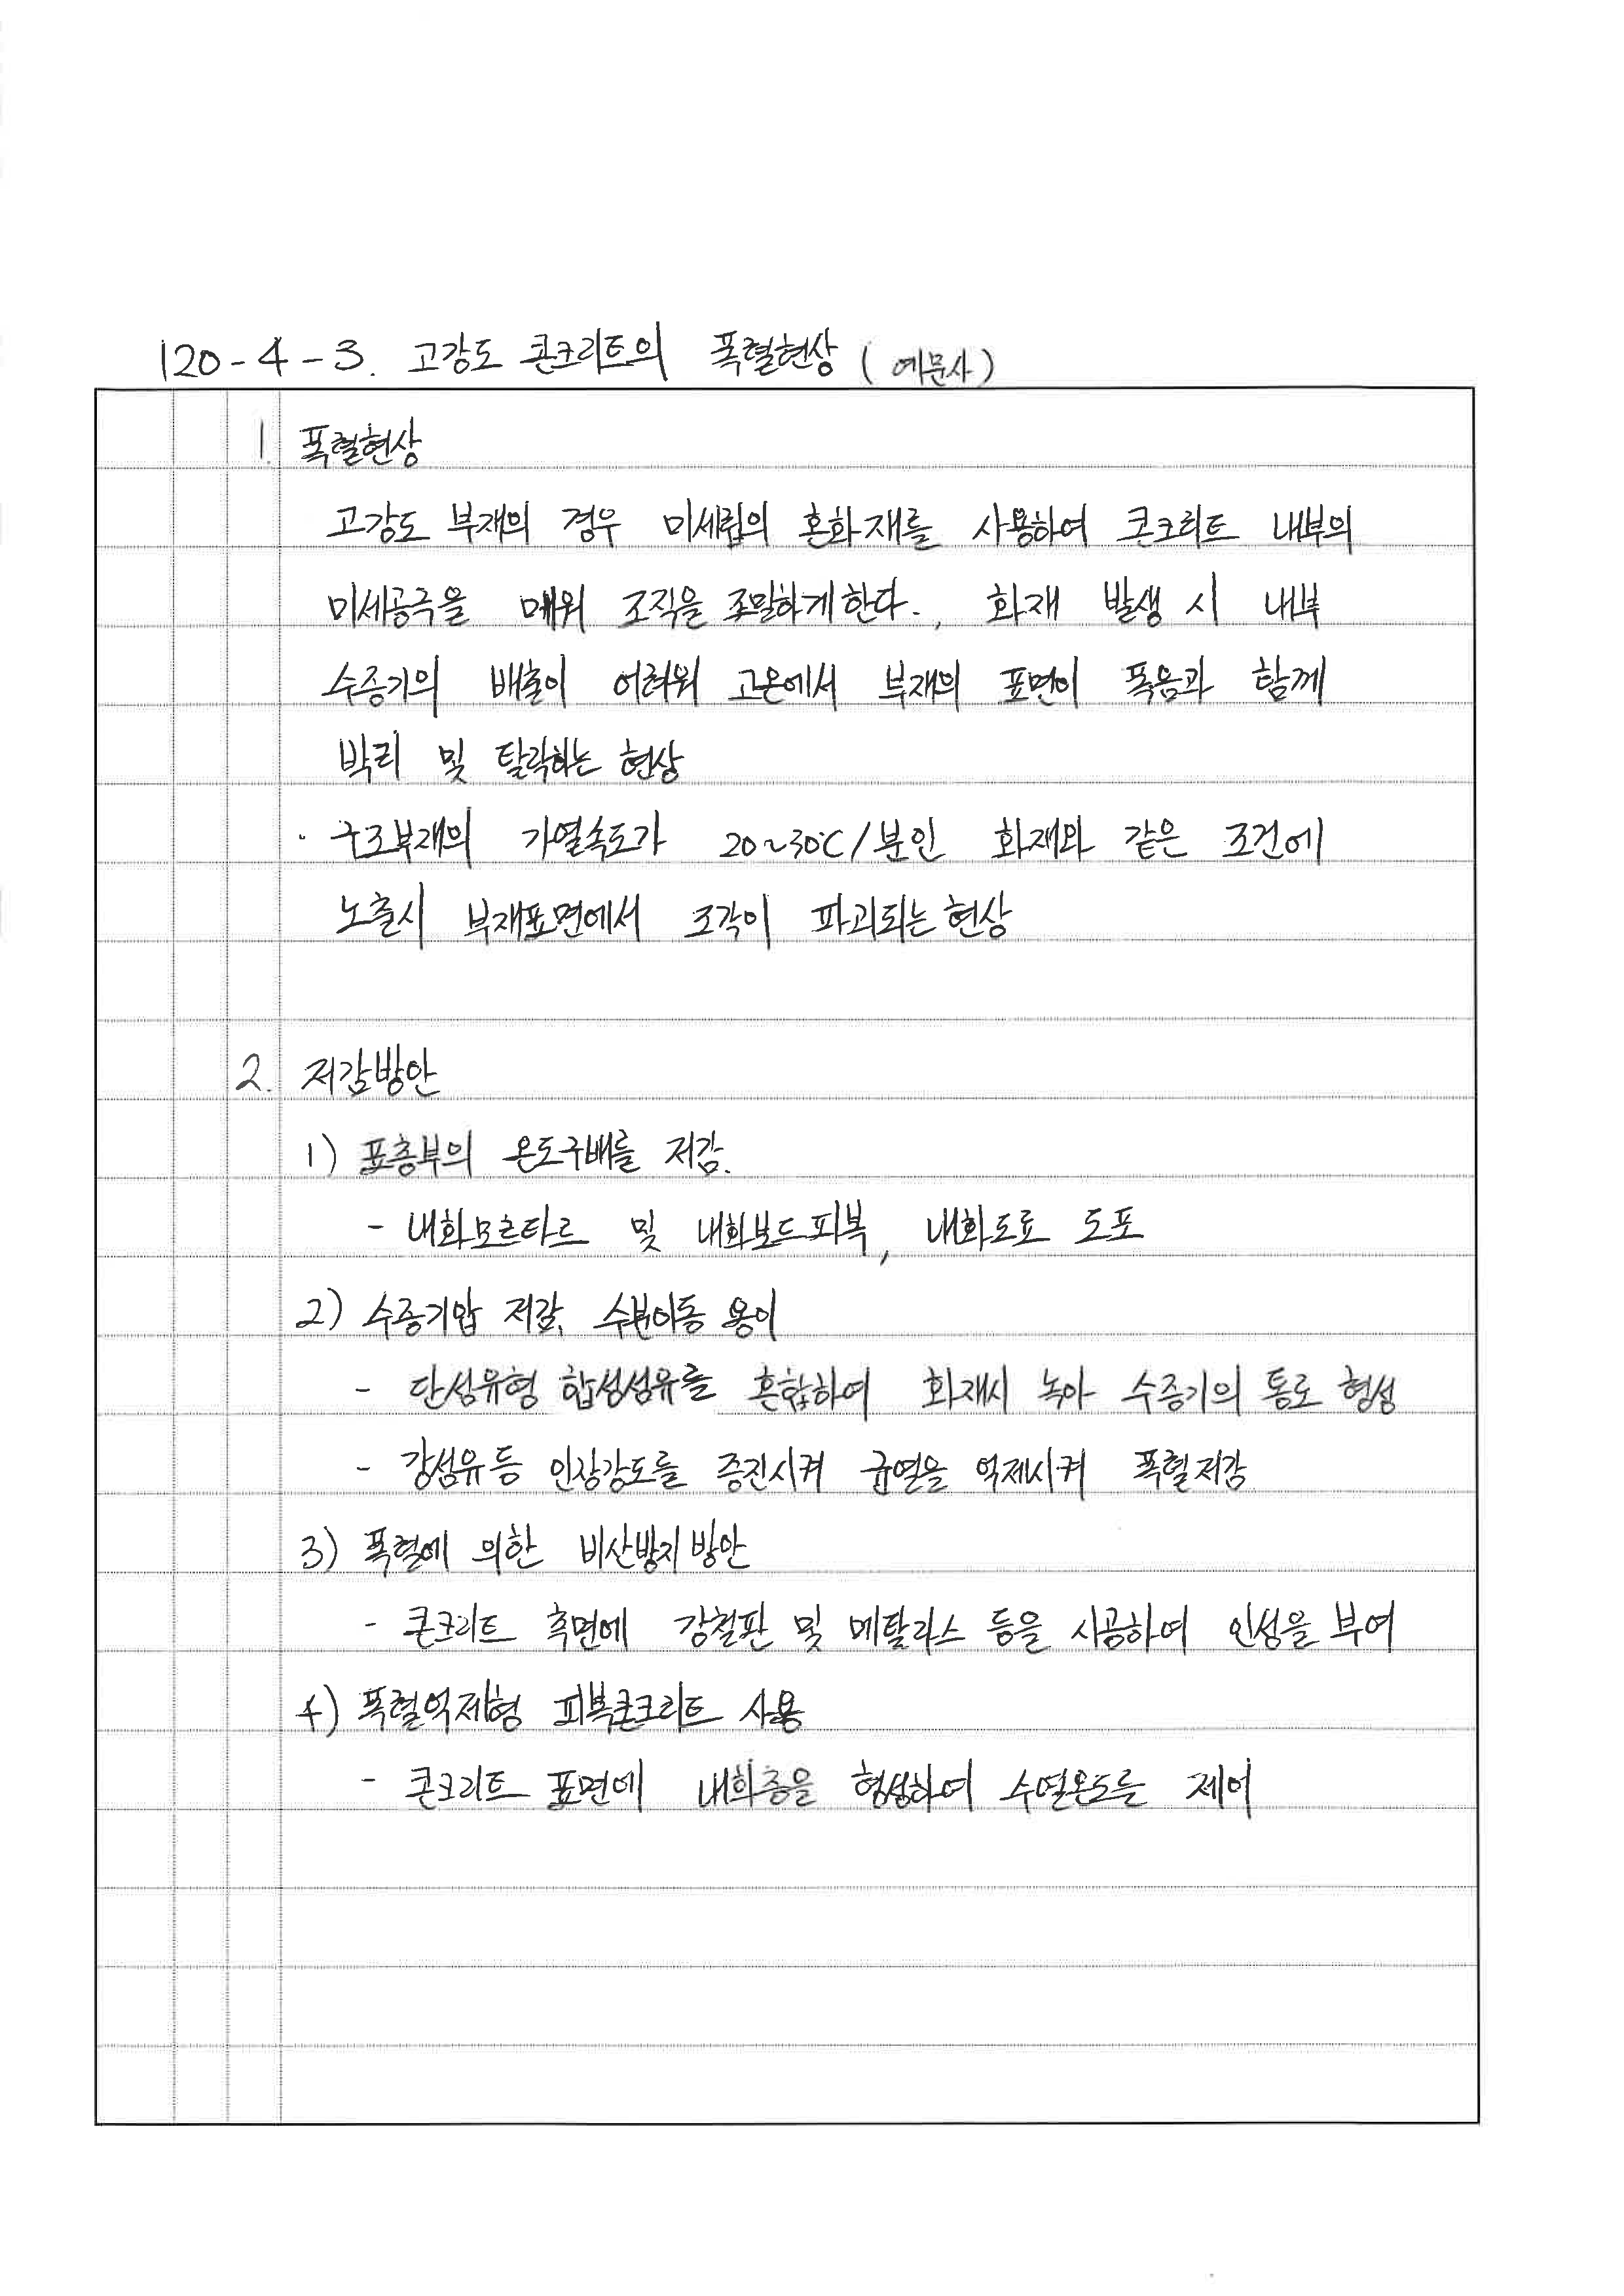 120-4-3. 고강도 콘크리트의 폭렬현상 (예문사)
1. 폭렬현상
고강도 부재의 경우 미세립의 혼화재를 사용하여 콘크리트 내부의
미세공극을 메워 조직을 조밀하게한다., 화재 발생 시 내부
수증기의 배출이 어려워 고온에서 부재의 표면이 폭음과 함께
박리 및 탈락하는 현상
· 구조부재의 가열속도가 20~30℃/분인 화재와 같은 조건에
노출시 부재표면에서 조각이 파괴되는 현상
2. 저감방안
1) 표층부의 온도구배를 저감.
- 내화모르타르 및 내화보드피복, 내화도료 도포
2) 수증기압 저감, 수분이동 용이
- 단섬유형 합성섬유를 혼합하여 화재시 녹아 수증기의 통로 형성
- 강섬유등 인장강도를 증진시켜 균열을 억제시켜 폭렬저감
3) 폭렬에 의한 비산방지방안
- 콘크리트 측면에 강철판 및 메탈라스 등을 시공하여 인성을 부여
4) 폭렬억제형 피복콘크리트 사용
- 콘크리트 표면에 내화층을 형성하여 수열온도를 제어